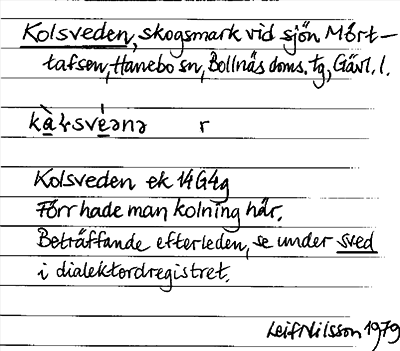 Kolsveden, skogsmark vid sjön Mört-
tafsen, Hanebo sn, Bollnäs doms. tg, Gävl. l.
kàɽsvéənə r
Kolsveden ek 14G4g
Förr hade man kolning här.
Beträffande efterleden, se under sved
i dialektordregistret.
Leif Nilsson 1979